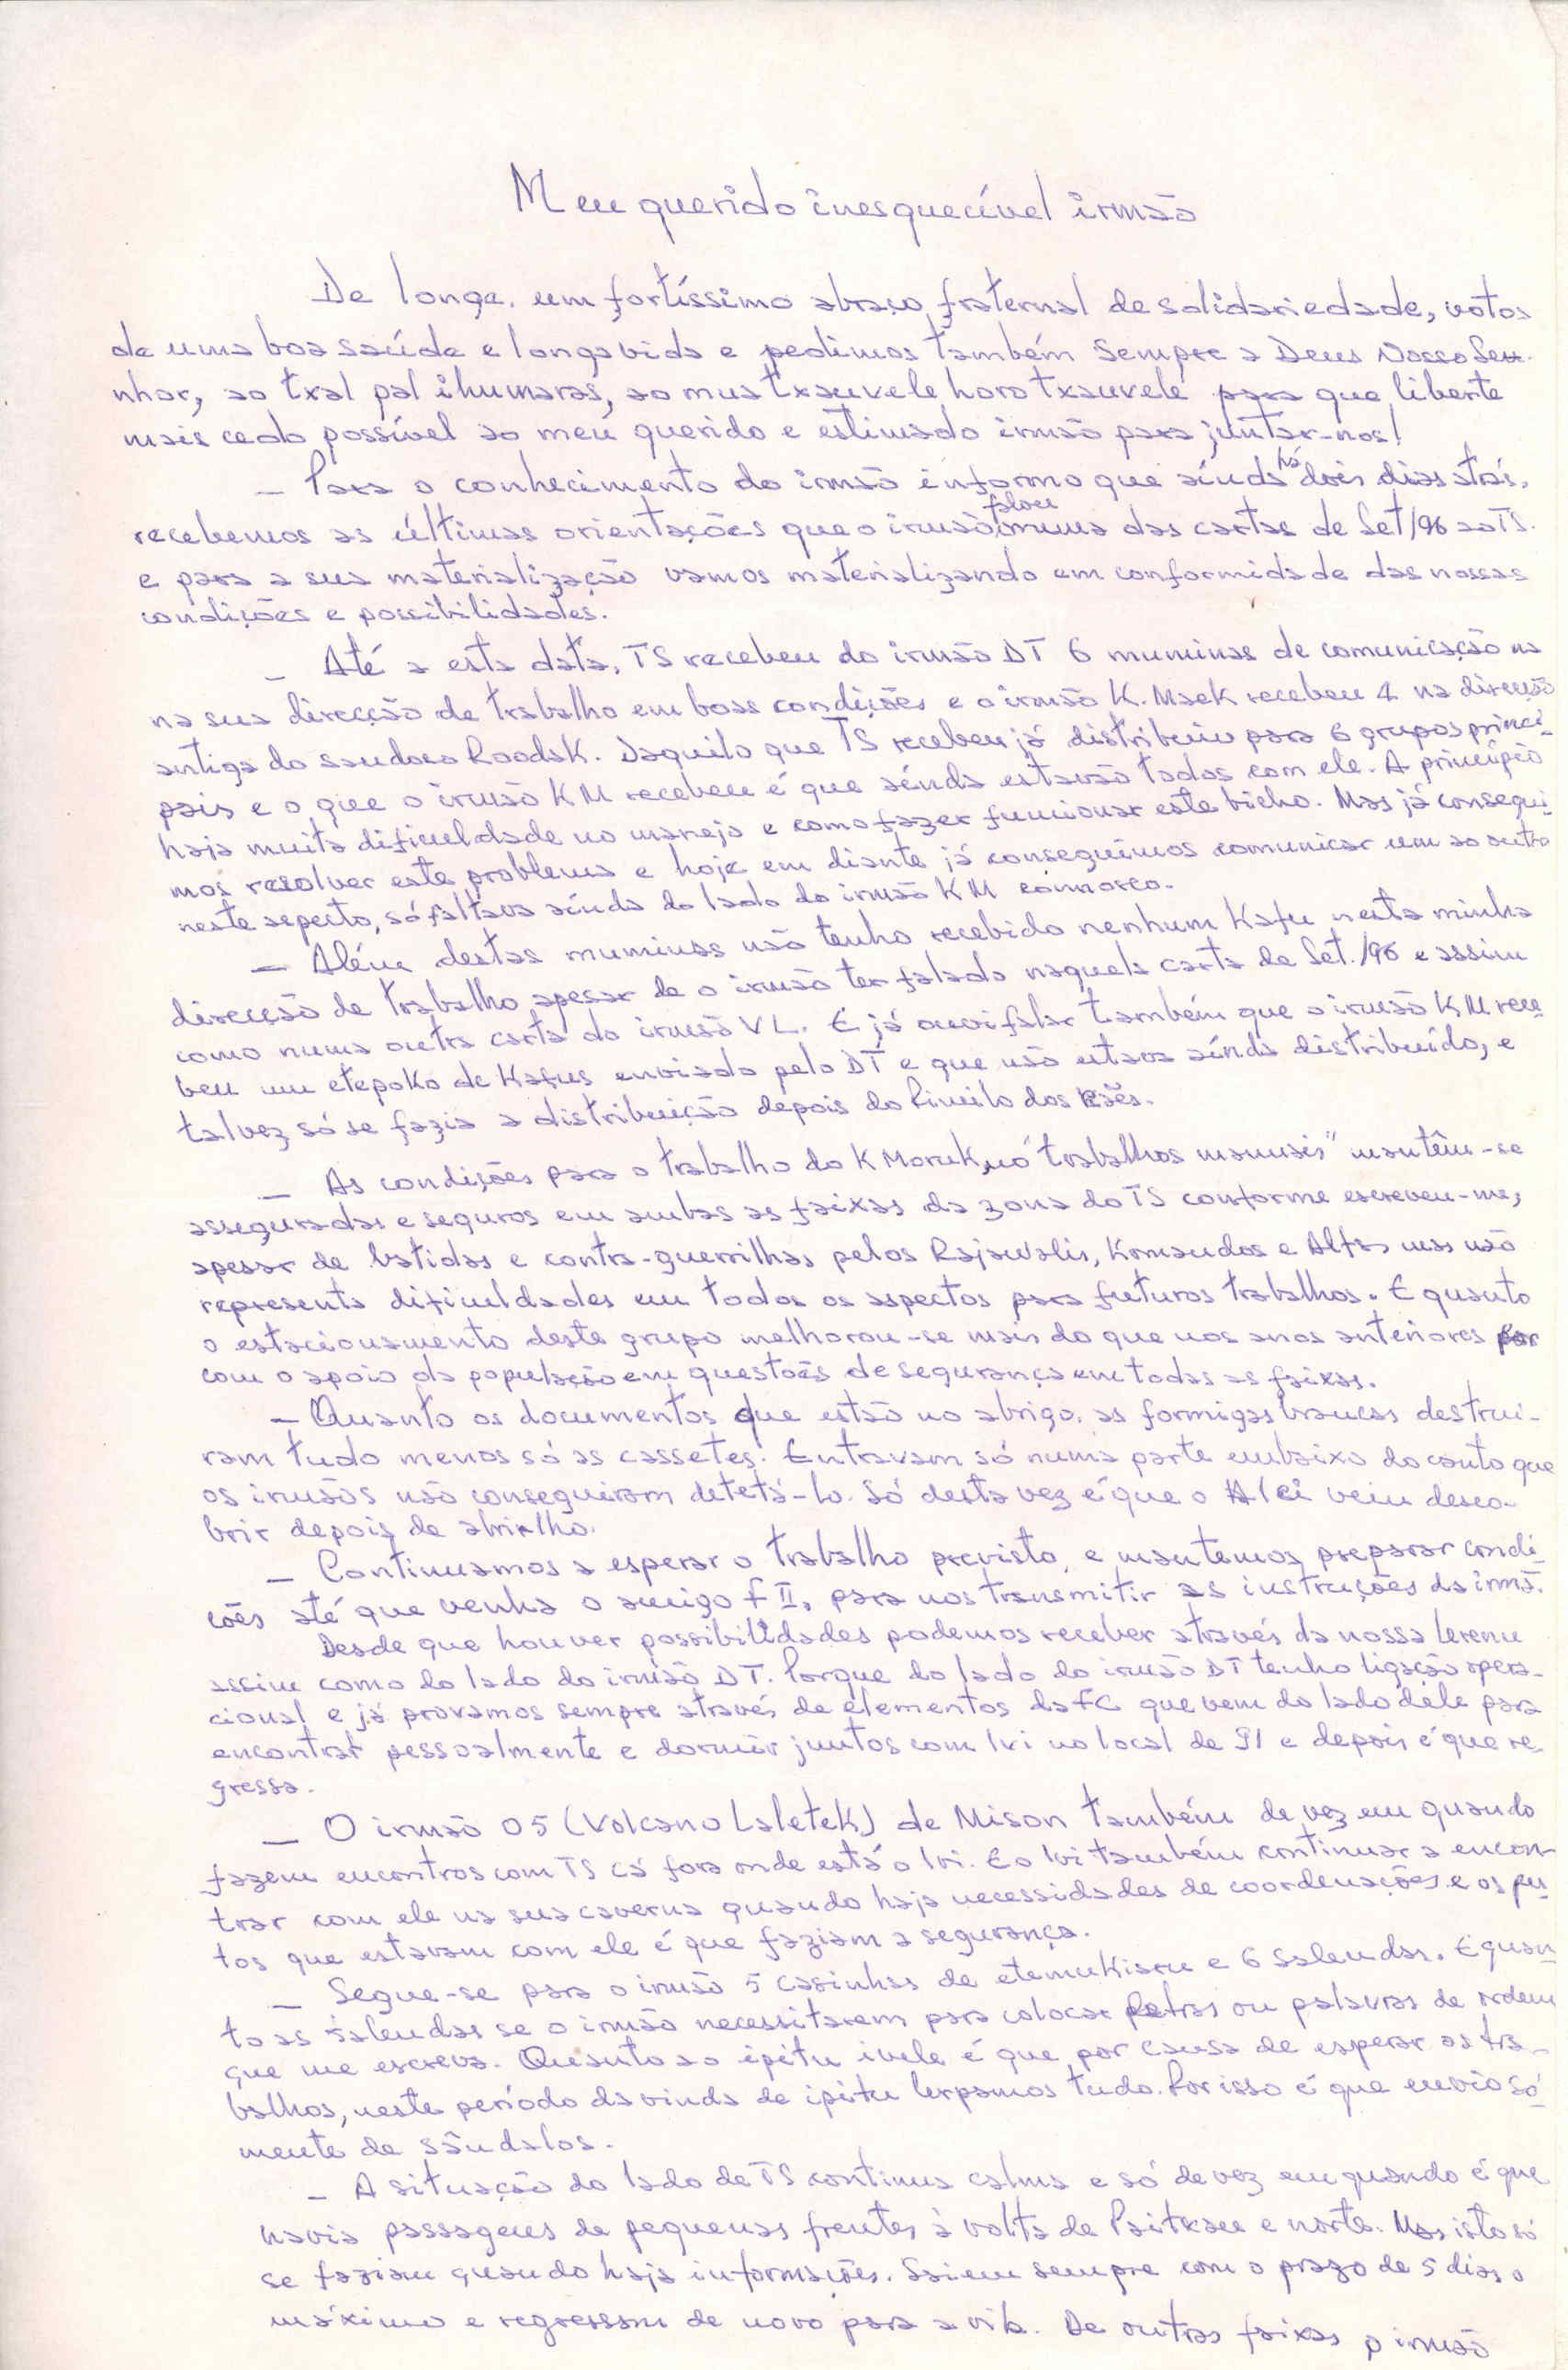 Meu querido inesquecível irmão
De longe, um fortíssimo abraço fraternal de solidariedade, votos
de uma boa saúde e longa vida e pedimos também sempre a Deus Nosso Se
nhor, ao txal pal ihumaras, ao mua txauvele horo txauvele para que liberte
mais cedo possível ao meu querido e estimado irmão para juntar-nos!
– Para o conhecimento do irmão informo que aínda há dois dias atrás,
recebemos as últimas orientações que o irmão falou numa das cartas de Set/96 ao TS.
e para a sua materialização vamos materializando em conformidade das nossas
condições e possibilidades.
– Até a esta data, TS recebeu do irmão DT 6 muminas de comunicação na
na sua direcção de trabalho em boas condições e o irmão K. Maek recebeu 4 na direcção
antiga do saudoso Roodak. Daquilo que TS recebeu já distribuiu para 6 grupos princi-
pais e o que o irmão KM recebeu é que aínda estavão todos com ele. A princípio
haja muita dificuldade no manejo e como fazer funcionar este bicho. Mas já consegui-
mos resolver este problema e hoje em diante já conseguimos comunicar um ao outro
neste aspecto, só faltava aínda do lado do irmão KM connosco.
– Além destas muminas não tenho recebido nenhum Kafu nesta minha
direcção de trabalho apesar de o irmão ter falado naquela carta de Set./96 e assim
como numa outra carta do irmão VL. E já ouvi falar também que o irmão KM rece
beu um etepoko de Kafus enviado pelo DT e que não estava aínda distribuído, e
talvez só se fazia a distribuição depois do Pimilo dos
– As condições para o trabalho do K Moruk, nó "trabalhos manuais" mantêm-se
asseguradas e seguros em ambas as faixas da zona do TS conforme escreveu-me,
apesar de batidas e contra-guerrilhas pelos Rajawalis, Komandos e Alfas mas não
representa dificuldades em todos os aspectos para futuros trabalhos. E quanto
o estacionamento deste grupo melhorou-se mais do que nos anos anteriores por
com o apoio da população em questoẽs de segurança em todas as faixas.
– Quanto os documentos que estão no abrigo, as formigas brancas destrui-
ram tudo menos só as cassetes. Entravam só numa parte embaixo do canto que
os irmãos não conseguiram detetá-lo. Só desta vez é que o Alei veiu desco-
brir depois de abri-lho.
– Continuamos a esperar o trabalho previsto, e mantemos preparar condi-
cões até que venha o amigo f II, para nos transmitir as instruções da irmã.
Desde que houver possibilidades podemos receber através da nossa Lerenu
assim como do lado do irmão DT. Porque do lado do irmão DT tenho ligação opera-
cional e já provamos sempre através de elementos da FC que vem do lado dele para
encontrar pessoalmente e dormir juntos com Ivi no local de 91 e depois é que re
gressa.
– O irmão 05 (Volcano Laletek) de Mison também de vez em quando
fazem encontros com TS cá fora onde está o Ivi. E o Ivi também continuar a encon-
trar com ele na sua caverna quando haja necessidades de coordenações e os pu
tos que estavam com ele é que faziam a segurança.
– Segue-se para o irmão 5 casinhas de etemukisru e 6 salendas. E quan
to as salendas se o irmão necessitarem para colocar letras ou palavras de ordem
que me escreva. Quanto ao ipitu ivele é que por causa de esperar os tra-
balhos, neste período da vinda de ipitu lerpamos tudo. Por isso é que envio só
mente de sândalos.
– A situação do lado de TS continua calma e só de vez em quando é que
havia passagens de pequenas frentes à volta de Paitxau e norte. Mas isto só
se faziam quando haja informações. Saiem sempre com o prazo de 5 dias o
máximo e regressam de novo para a vila. De outras faixas o irmão